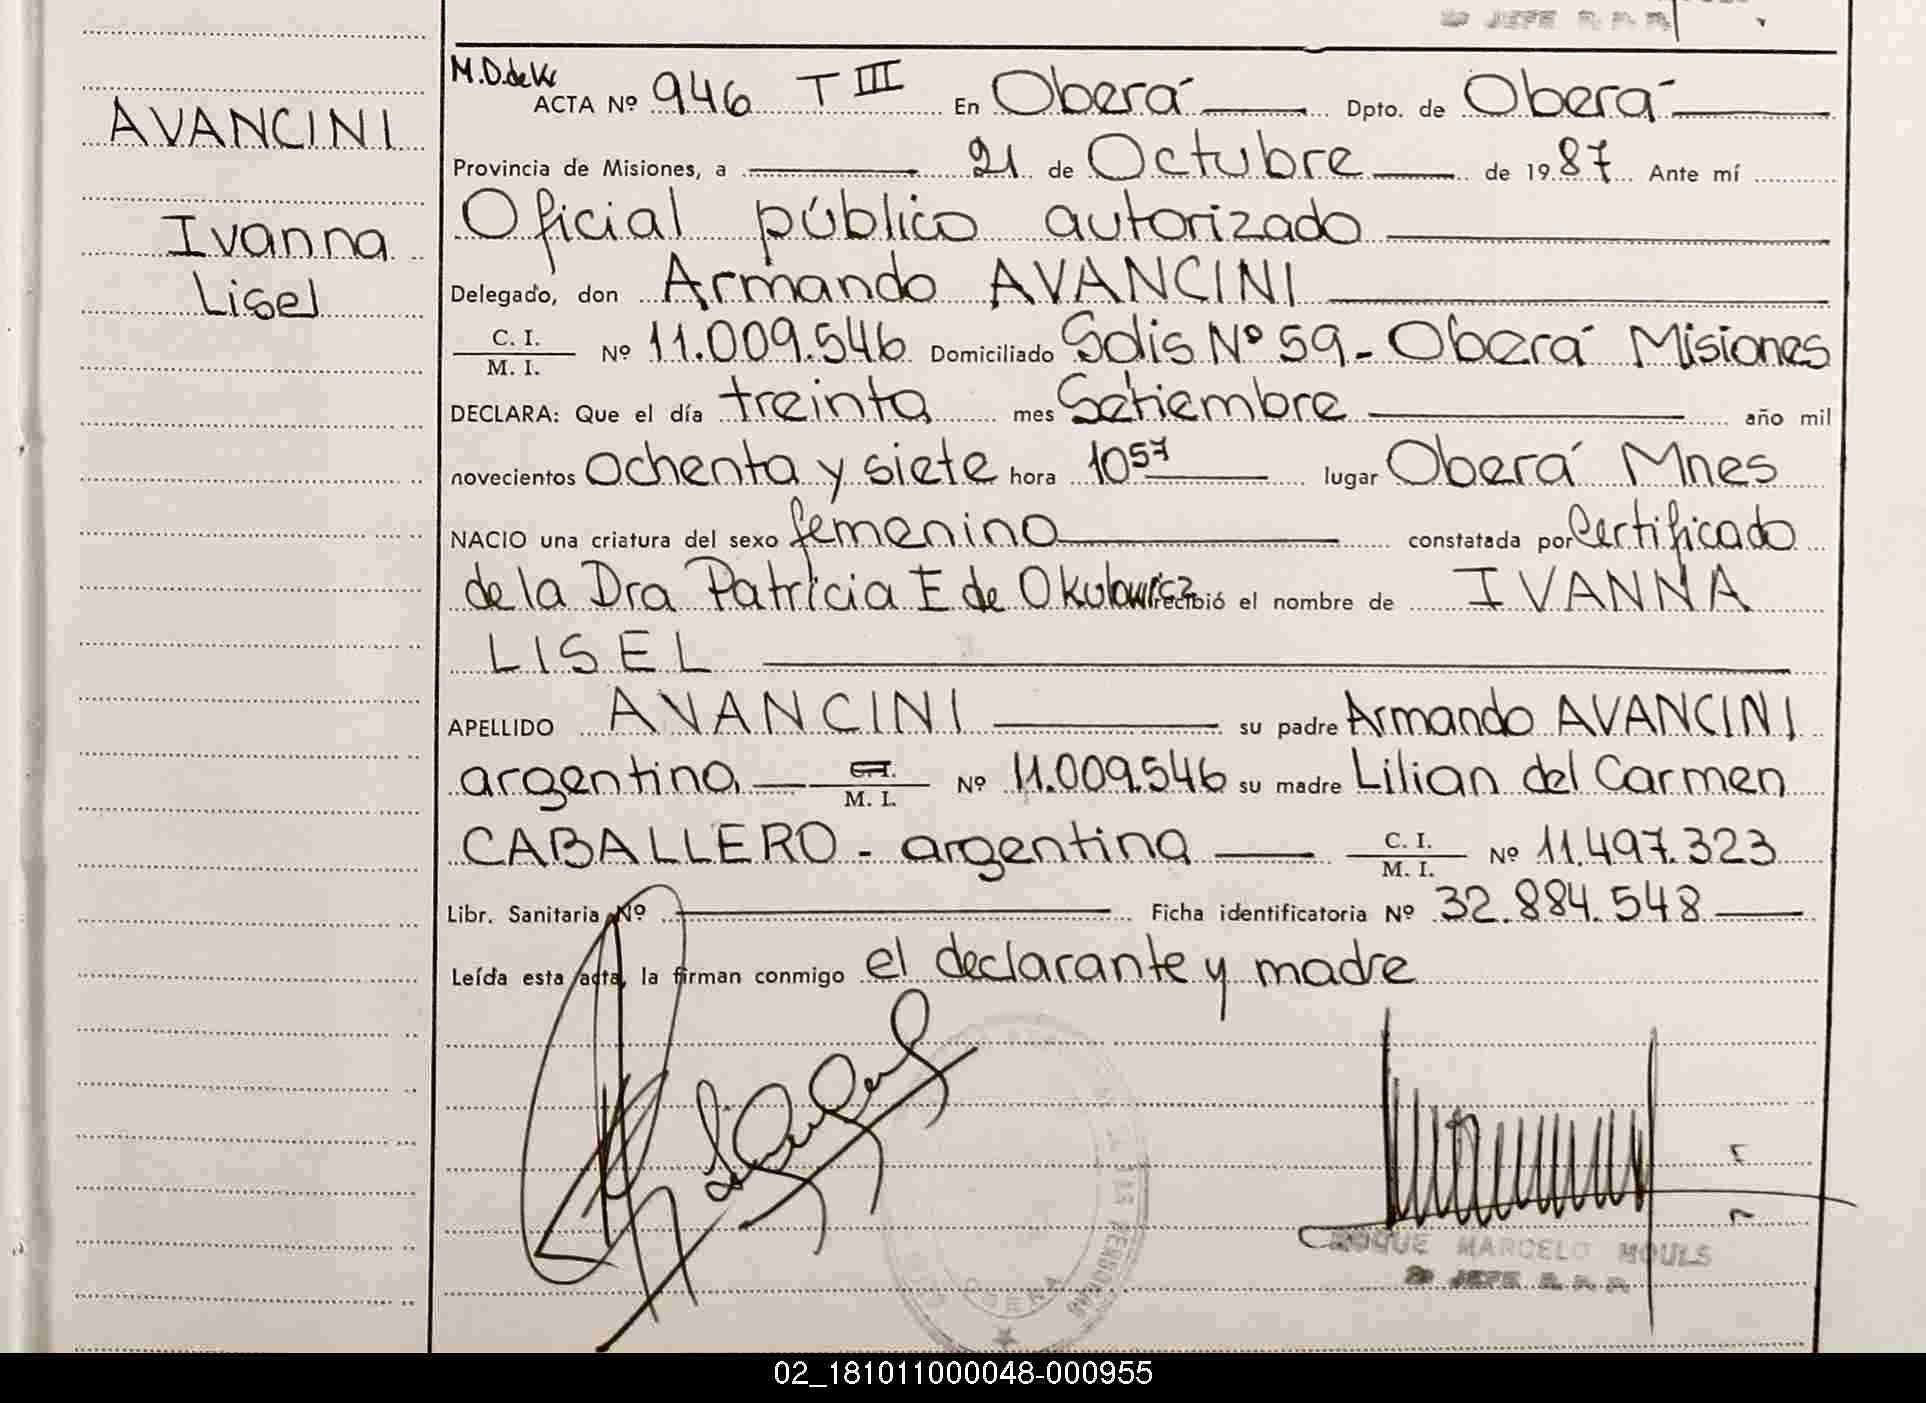 2º JEFE R. P. P.
AVANCINI
Ivanna
Lisel
M.D. de K
ACTA Nº 946 T III En Oberá Dpto. de Oberá
Provincia de Misiones, a 21 de Octubre de 1987 Ante mí
Oficial público autorizado
Delegado, don Armando AVANCINI
C. I. / M. I. Nº 11.009.546 Domiciliado Solis Nº 59 - Oberá Misiones
DECLARA: Que el día treinta mes Setiembre año mil
novecientos ochenta y siete hora 10 57 lugar Oberá Mnes
NACIO una criatura del sexo femenino constatada por Certificado
de la Dra Patricia E de Okulowicz recibió el nombre de IVANNA
LISEL
APELLIDO AVANCINI su padre Armando AVANCINI
argentino M. I. Nº 11.009.546 su madre Lilian del Carmen
CABALLERO - argentina C. I. / M. I. Nº 11.497.323
Libr. Sanitaria Nº Ficha identificatoria Nº 32.884.548
Leída esta acta, la firman conmigo el declarante y madre
LAS PERSONAS
OBERA
ROQUE MARCELO MOULS
2º JEFE R. P. P.
02_181011000048-000955